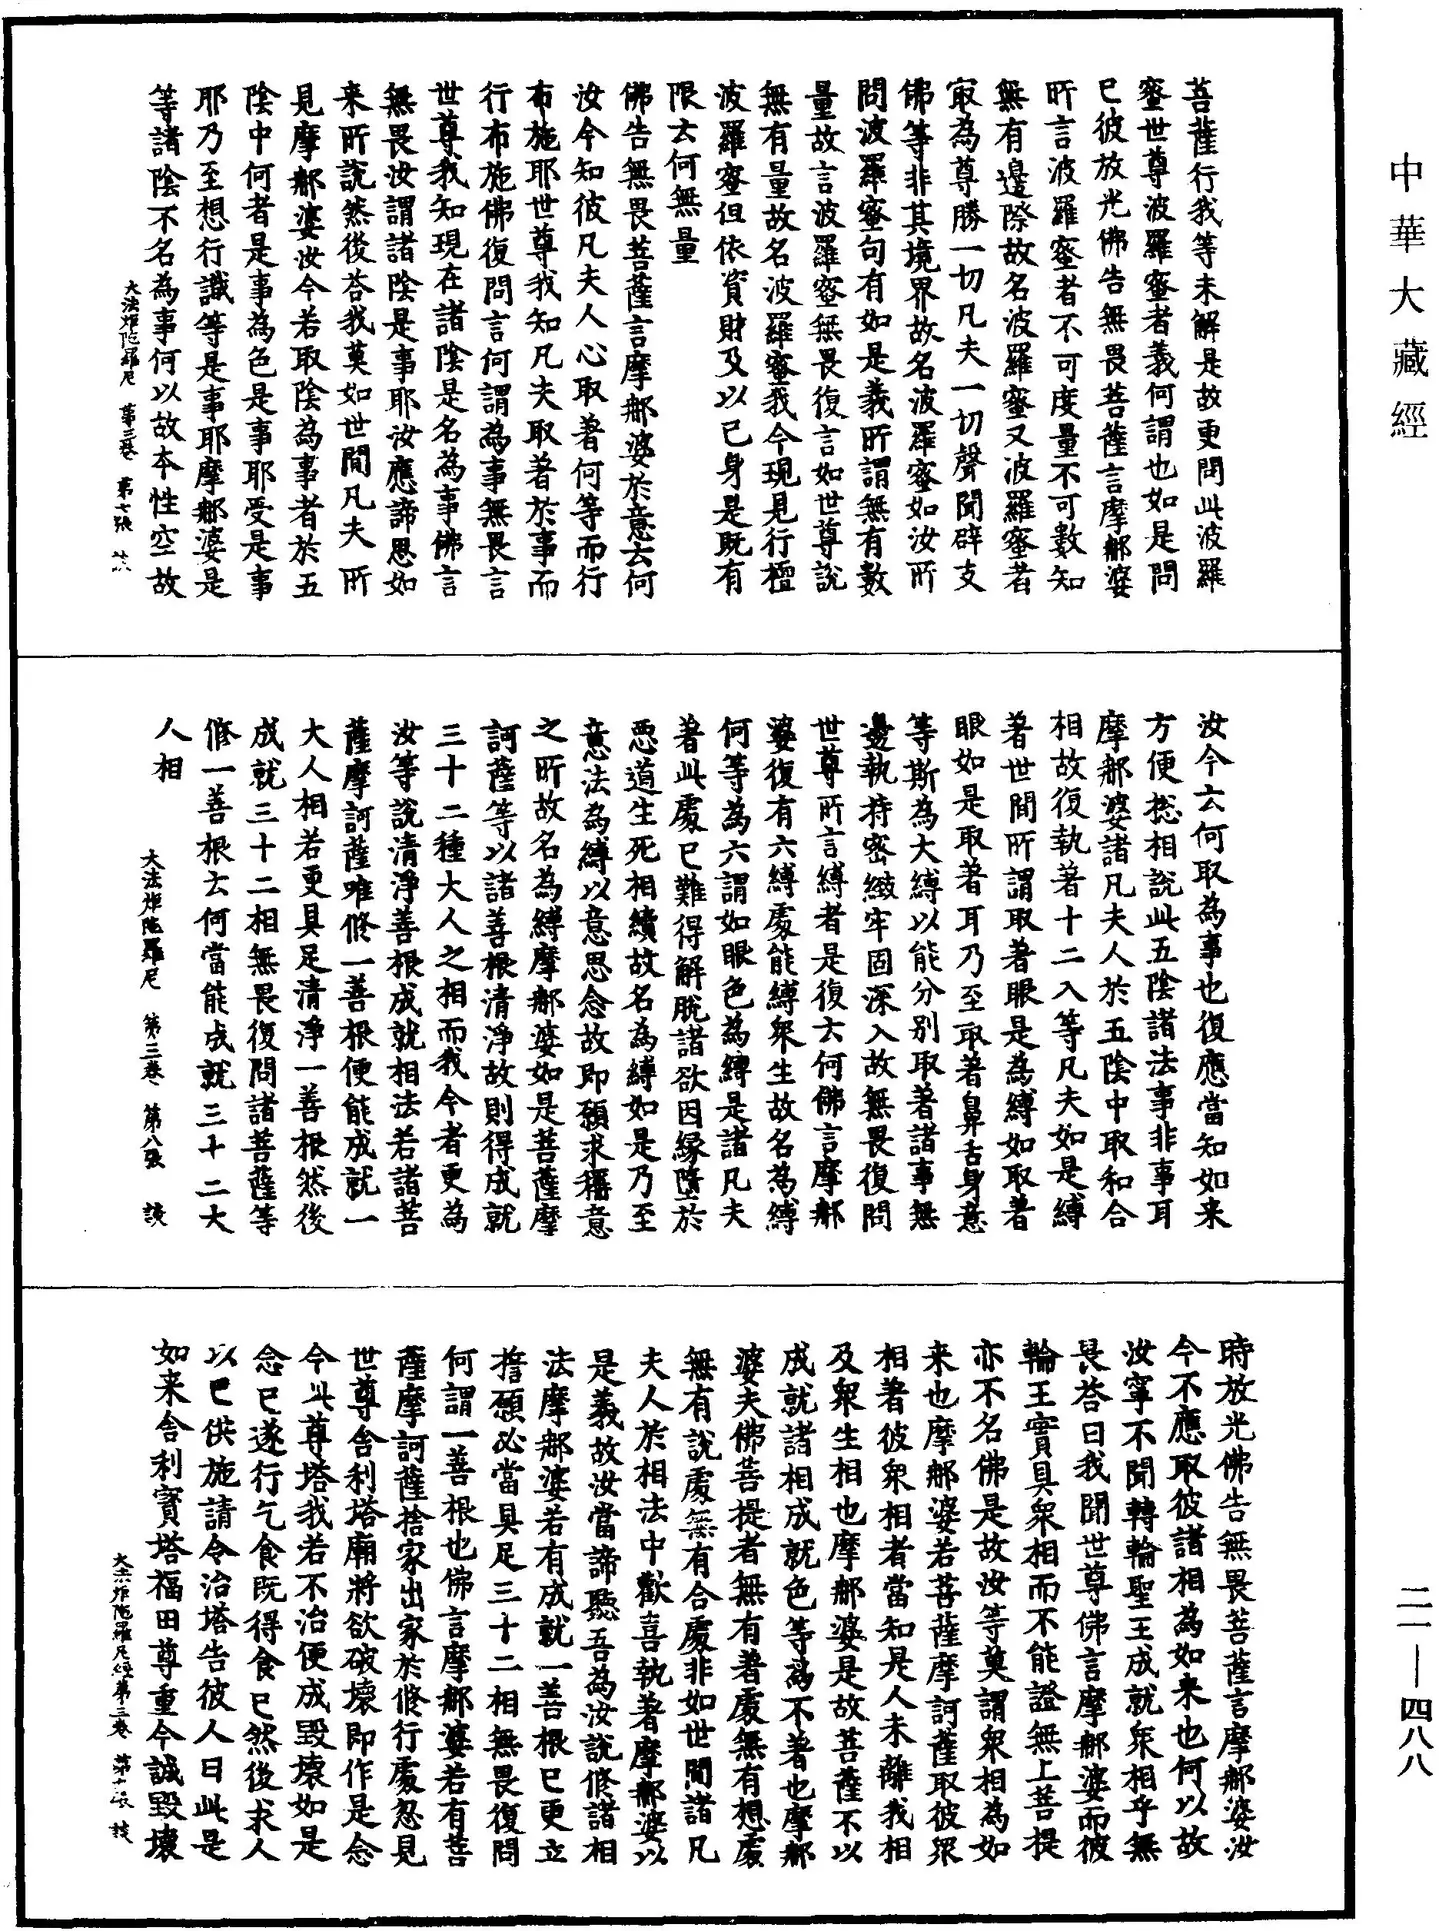 中華大藏經
菩薩行我等未解是故更問此波羅
蜜世尊波羅蜜者義何謂也如是問
已彼放光佛告無畏菩薩言摩那婆
所言波羅蜜者不可度量不可數知
無有邊際故名波羅蜜又波羅蜜者
寂為尊勝一切凡夫一切聲聞辟支
佛等非其境界故名波羅蜜如汝所
問波羅蜜句有如是義所謂無有數
量故言波羅蜜無畏復言如世尊說
無有量故名波羅蜜我今現見行檀
波羅蜜但依資財及以已身是既有
限云何無量
佛告無畏菩薩言摩那婆於意云何
汝今知彼凡夫人心取著何等而行
布施耶世尊我知凡夫取著於事而
行布施佛復問言何謂為事無畏言
世尊我知現在諸陰是名為事佛言
無畏汝謂諸陰是事耶汝應諦思如
来所說然後荅我莫如世間凡夫所
見摩那婆汝今若取陰為事者於五
陰中何者是事為色是事耶受是事
耶乃至想行識等是事耶摩那婆是
等諸陰不名為事何以故本性空故
大法炬陀羅尼 第三卷 第七張
汝今云何取為事也復應當知如来
方便捴相說此五陰諸法事非事耳
摩那婆諸凡夫人於五陰中取和合
相故復執著十二入等凡夫如是縛
著世間所謂取著眼是為縛如取著
眼如是取著耳乃至取著鼻舌身意
等斯為大縛以能分別取著諸事無
邊執持密緻牢固深入故無畏復問
世尊所言縛者是復云何佛言摩那
婆復有六縛處能縛衆生故名為縛
何等為六謂如眼色為縛是諸凡夫
著此處已難得解脫諸欲因緣墮於
惡道生死相續故名為縛如是乃至
意法為縛以意思念故即願求稱意
之所故名為縛摩那婆如是菩薩摩
訶薩等以諸善根清淨故則得成就
三十二種大人之相而我今者更為
汝等說清淨善根成就相法若諸菩
薩摩訶薩唯修一善根便能成就一
大人相若更具足清淨一善根然後
成就三十二相無畏復問諸菩薩等
修一善根云何當能成就三十二大
人相
大法炬陀羅尼 第三卷 第八張 談
時放光佛告無畏菩薩言摩那婆汝
今不應取彼諸相為如来也何以故
汝寧不聞轉輪聖王成就衆相乎無
畏荅曰我聞世尊佛言摩那婆而彼
輪王實具衆相而不能證無上菩提
亦不名佛是故汝等莫謂衆相為如
来也摩那婆若菩薩摩訶薩取彼衆
相著彼衆相者當知是人未離我相
及衆生相也摩那婆是故菩薩不以
成就諸相成就色等為不著也摩那
婆夫佛菩提者無有著處無有想處
無有說處無有合處非如世間諸凡
夫人於相法中歡喜執著摩那婆以
是義故汝當諦聽吾為汝說修諸相
法摩那婆若有成就一善根已更立
擔願必當具足三十二相無畏復問
何謂一善根也佛言摩那婆若有菩
薩摩訶薩捨家出家於修行處忽見
世尊舍利塔廟將欲破壞即作是念
今此尊塔我若不治便成毀壞如是
念已遂行乞食既得食已然後求人
以已供施請令治塔告彼人曰此是
如来舍利寶塔福田尊重今誠毀壞
大法炬陀羅尼經第三卷 第十張 談
二一—四八八